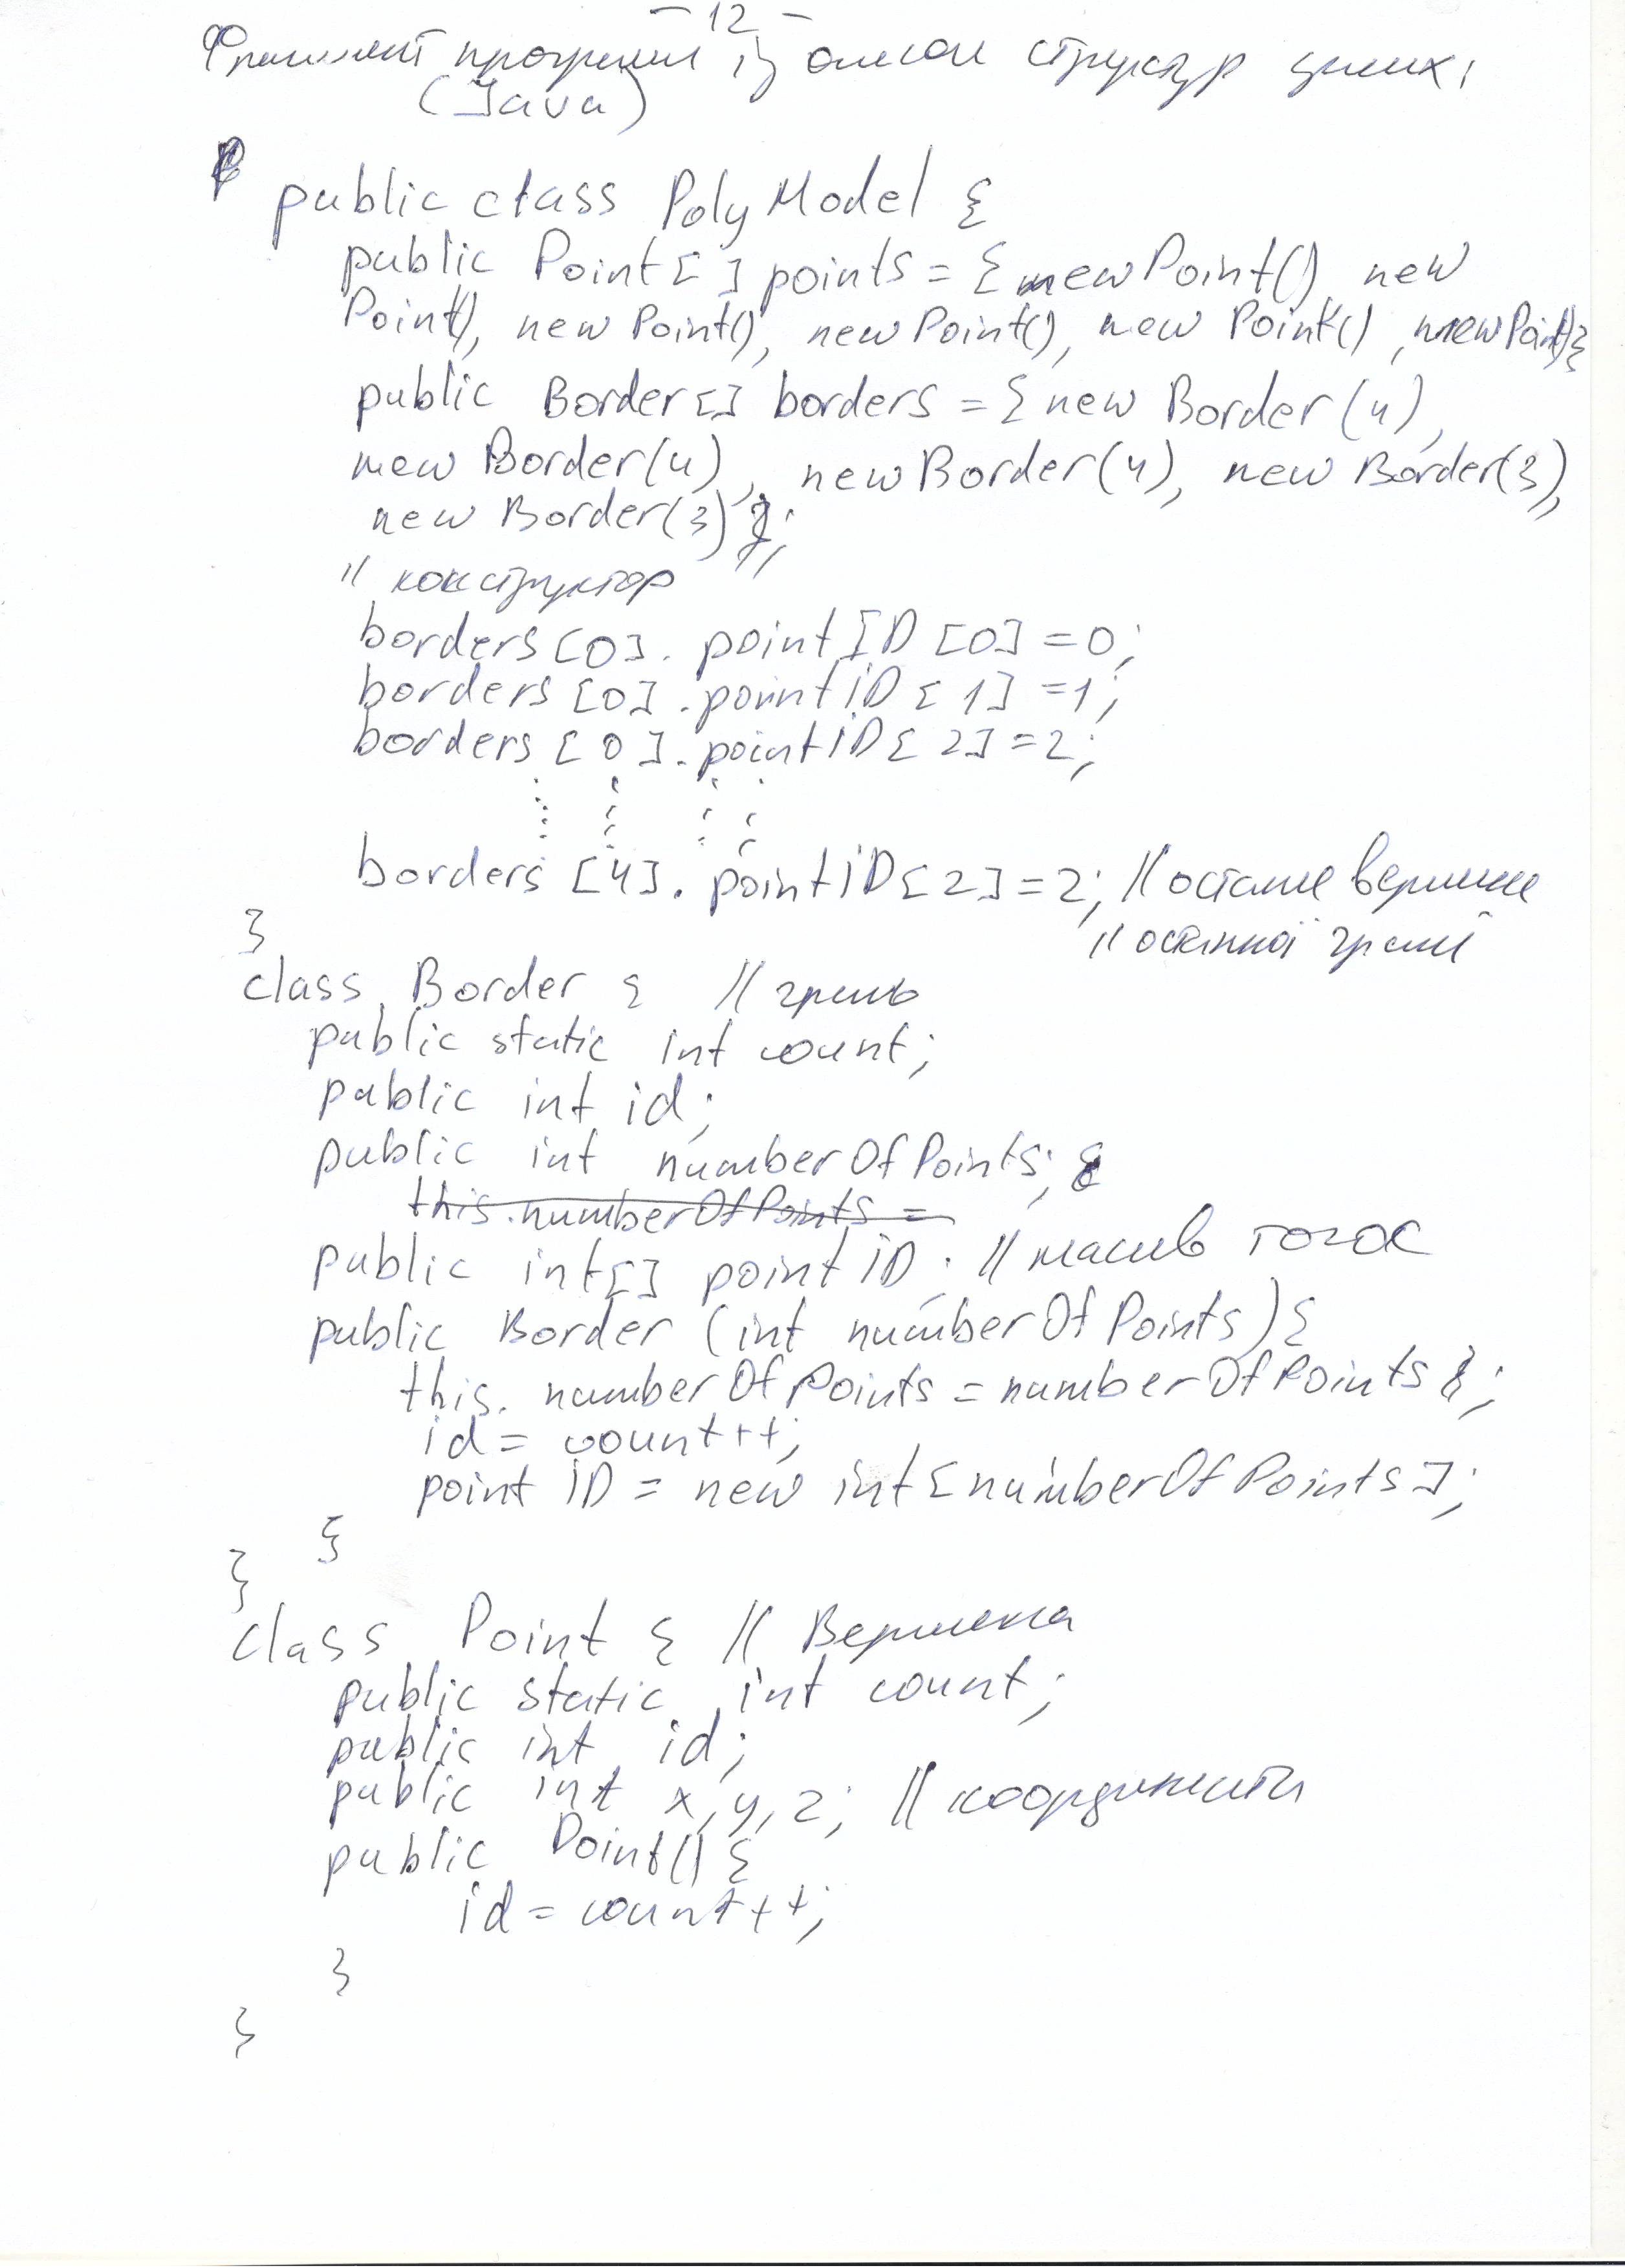 - 12 -
Фрагмент програми із описом структур даних,
(Java)
public class PolyModel {
public Point[] points = { new Point(), new
Point(), new Point(), new Point(), new Point(), new Point()}
public Border[] borders = { new Border(4),
new Border(4), new Border(4), new Border(3),
new Border(3) };
// конструктор
borders[0]. pointID[0] = 0;
borders[0]. pointID[1] = 1;
borders[0]. pointID[2] = 2;
borders[4]. pointID[2] = 2; // остання вершина
// останньої грані
}
class Border { // грань
public static int count;
public int id;
public int numberOfPoints;
this.numberOfPoints =
public int[] pointID; // масив точок
public Border (int numberOfPoints) {
this. numberOfPoints = numberOfPoints;
id = count++;
pointID = new int[numberOfPoints];
}
}
class Point { // Вершина
public static int count;
public int id;
public int x, y, z; // координати
public Point() {
id = count++;
}
}